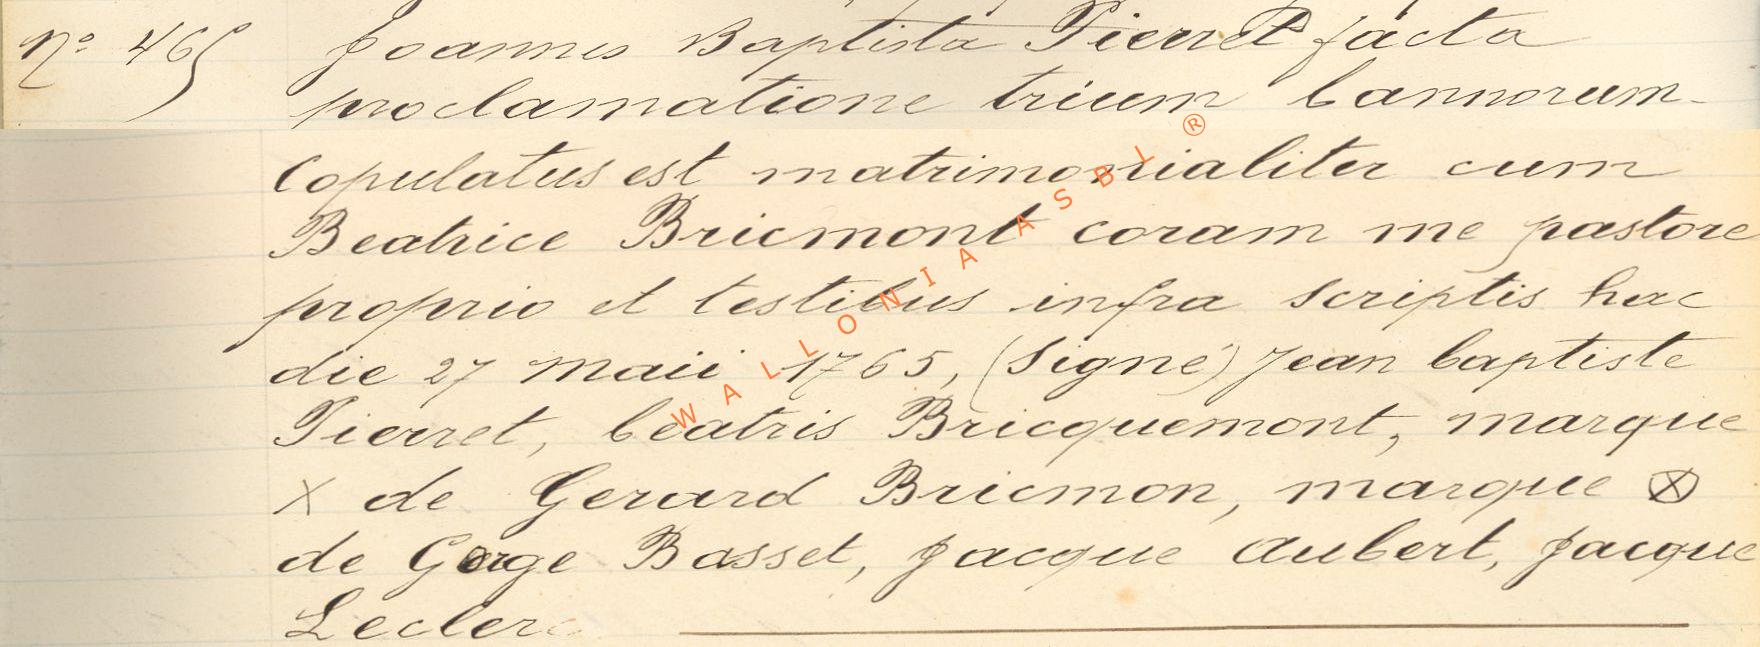 Nº 465 Joannes Baptista Pierret facta
proclamatione trium bannorum
Copulatus est matrimonialiter cum
Beatrice Bricmont coram me pastore
proprio et testibus infra scriptis hac
die 27 maii 1765, (Signé) Jean baptiste
Pierret, beatris Bricquemont, marque
X de Gerard Bricmon, marque ⊗
de Gorge Basset, Jacque Aubert, Jacque
Leclerc
WALLONIA ASBL ®